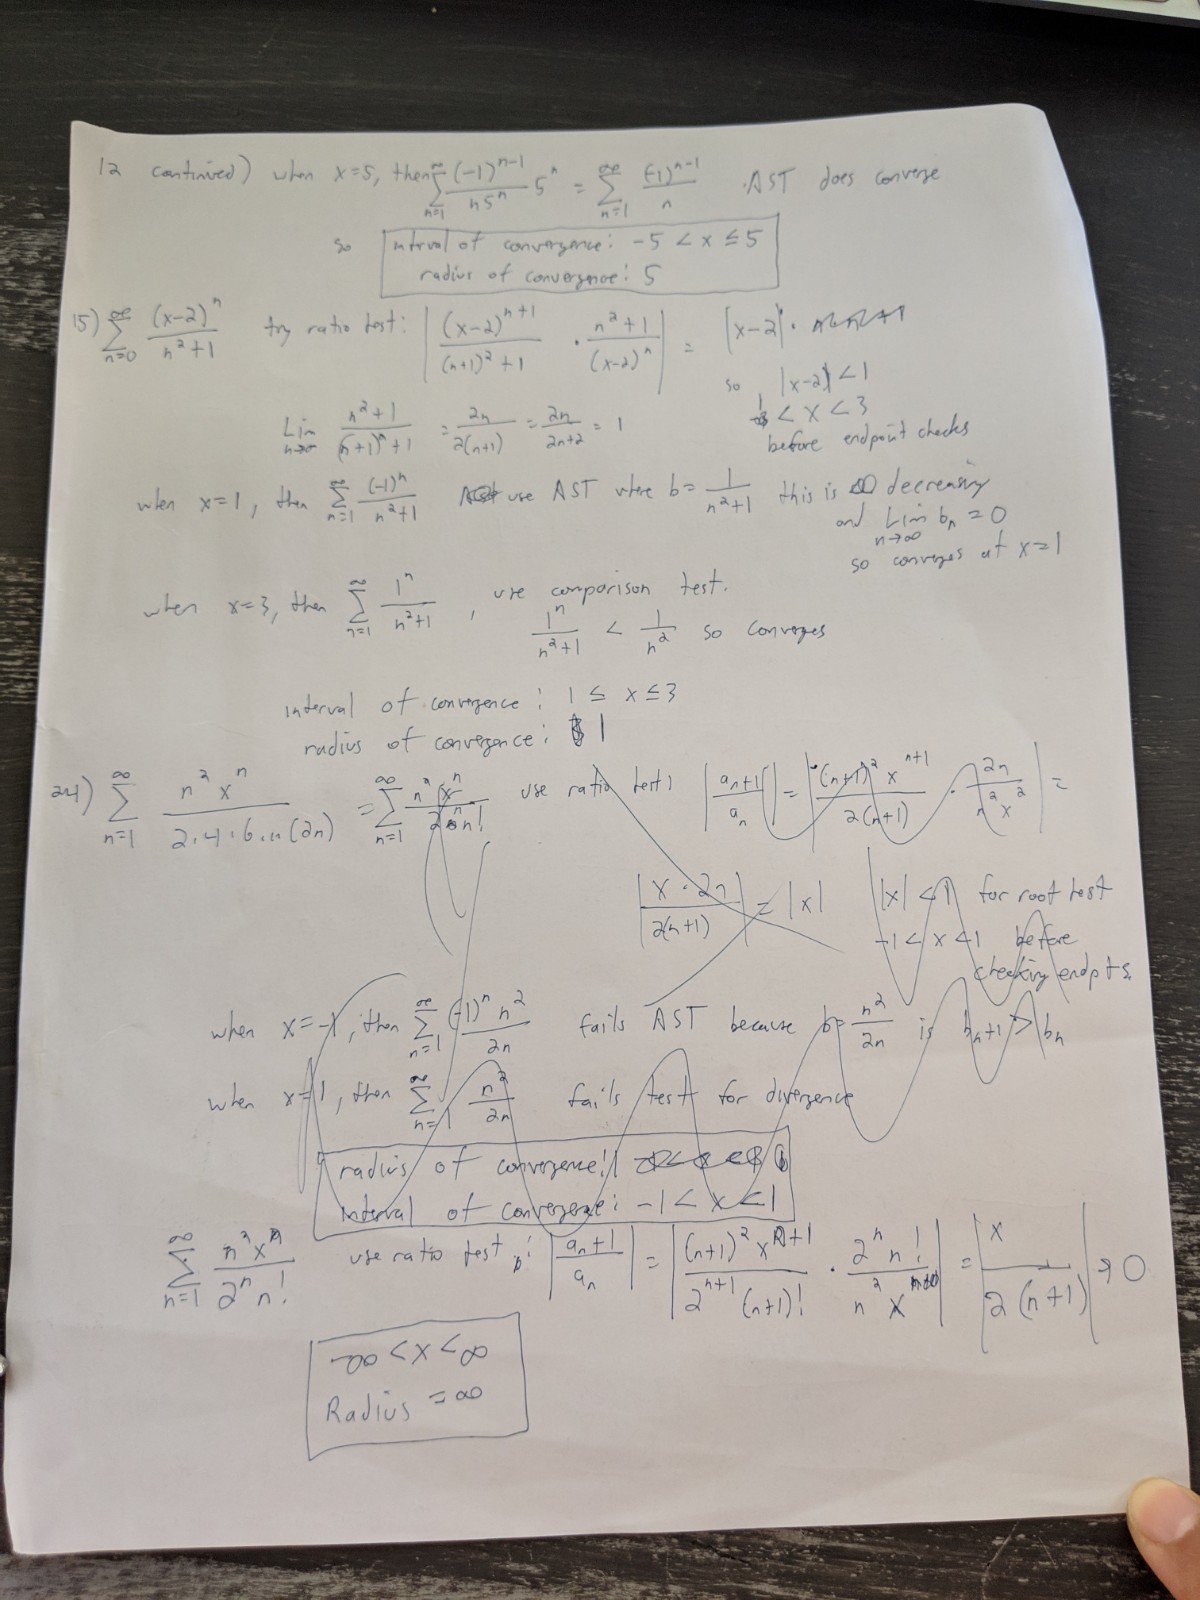 12 continued) when x=5, then ∞Σn=1 (-1)^(n-1)/(n5^n) 5^n = ∞Σn=1 (-1)^(n-1)/n . AST does converge
so interval of convergence: -5 < x ≤ 5
radius of convergence: 5
15) ∞Σn=0 (x-2)^n/(n²+1) try ratio test: |(x-2)^(n+1)/((n+1)²+1) · (n²+1)/(x-2)^n| = |x-2| ·
so |x-2| < 1
1 < x < 3
before endpoint checks
Lim n→∞ (n²+1)/((n+1)²+1) = 2n/2(n+1) = 2n/2n+2 = 1
when x=1, then ∞Σn=1 (-1)^n/(n²+1) use AST where b= 1/(n²+1) this is decreasing
and Lim n→∞ b_n = 0
so converges at x=1
when x=3, then ∞Σn=1 1^n/(n²+1), use comparison test.
1^n/(n²+1) < 1/n² so converges
interval of convergence: 1 ≤ x ≤ 3
radius of convergence: 1
24) ∞Σn=1 n²x^n/(2·4·6...(2n)) = ∞Σn=1 n²x^n/(2^n n!) use ratio test: |a_(n+1)/a_n| = |(n+1)² x^(n+1)/2(n+1) · 2n/(n² x²)| =
|x·2n/2(n+1)| = |x| |x| < 1 for root test
-1 < x < 1 before
checking endpts.
when x=-1, then ∞Σn=1 (-1)^n n²/2n fails AST because b= n²/2n is b_(n+1) > b_n
when x=1, then ∞Σn=1 n²/2n fails test for divergence
radius of convergence: 1
interval of convergence: -1 < x < 1
∞Σn=1 n²x^n/(2^n n!) use ratio test: |a_(n+1)/a_n| = |(n+1)² x^(n+1)/(2^(n+1) (n+1)!) · 2^n n!/(n² x^n)| = |x/2(n+1)| → 0
-∞ < x < ∞
Radius = ∞